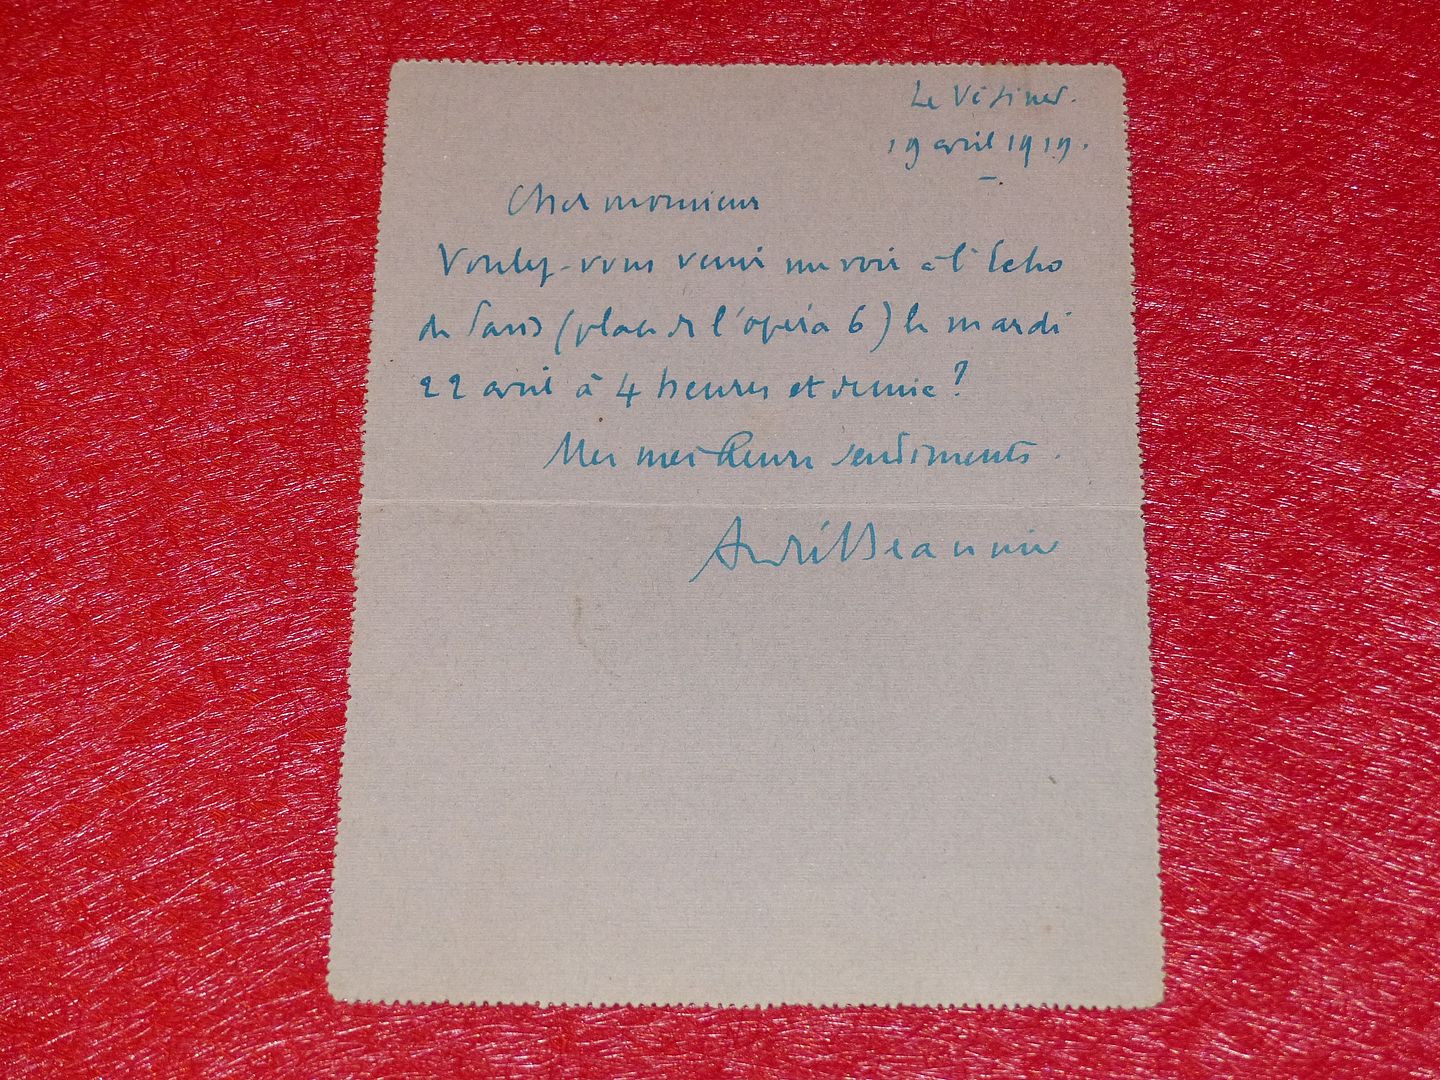 Le Vésinet.
19 avril 1919.
Cher monsieur
Voulez-vous venir me voir à l'Echo
de Paris (place de l'opéra 6) le mardi
22 avril à 4 heures et demie ?
Mes meilleurs sentiments.
André Beaunier